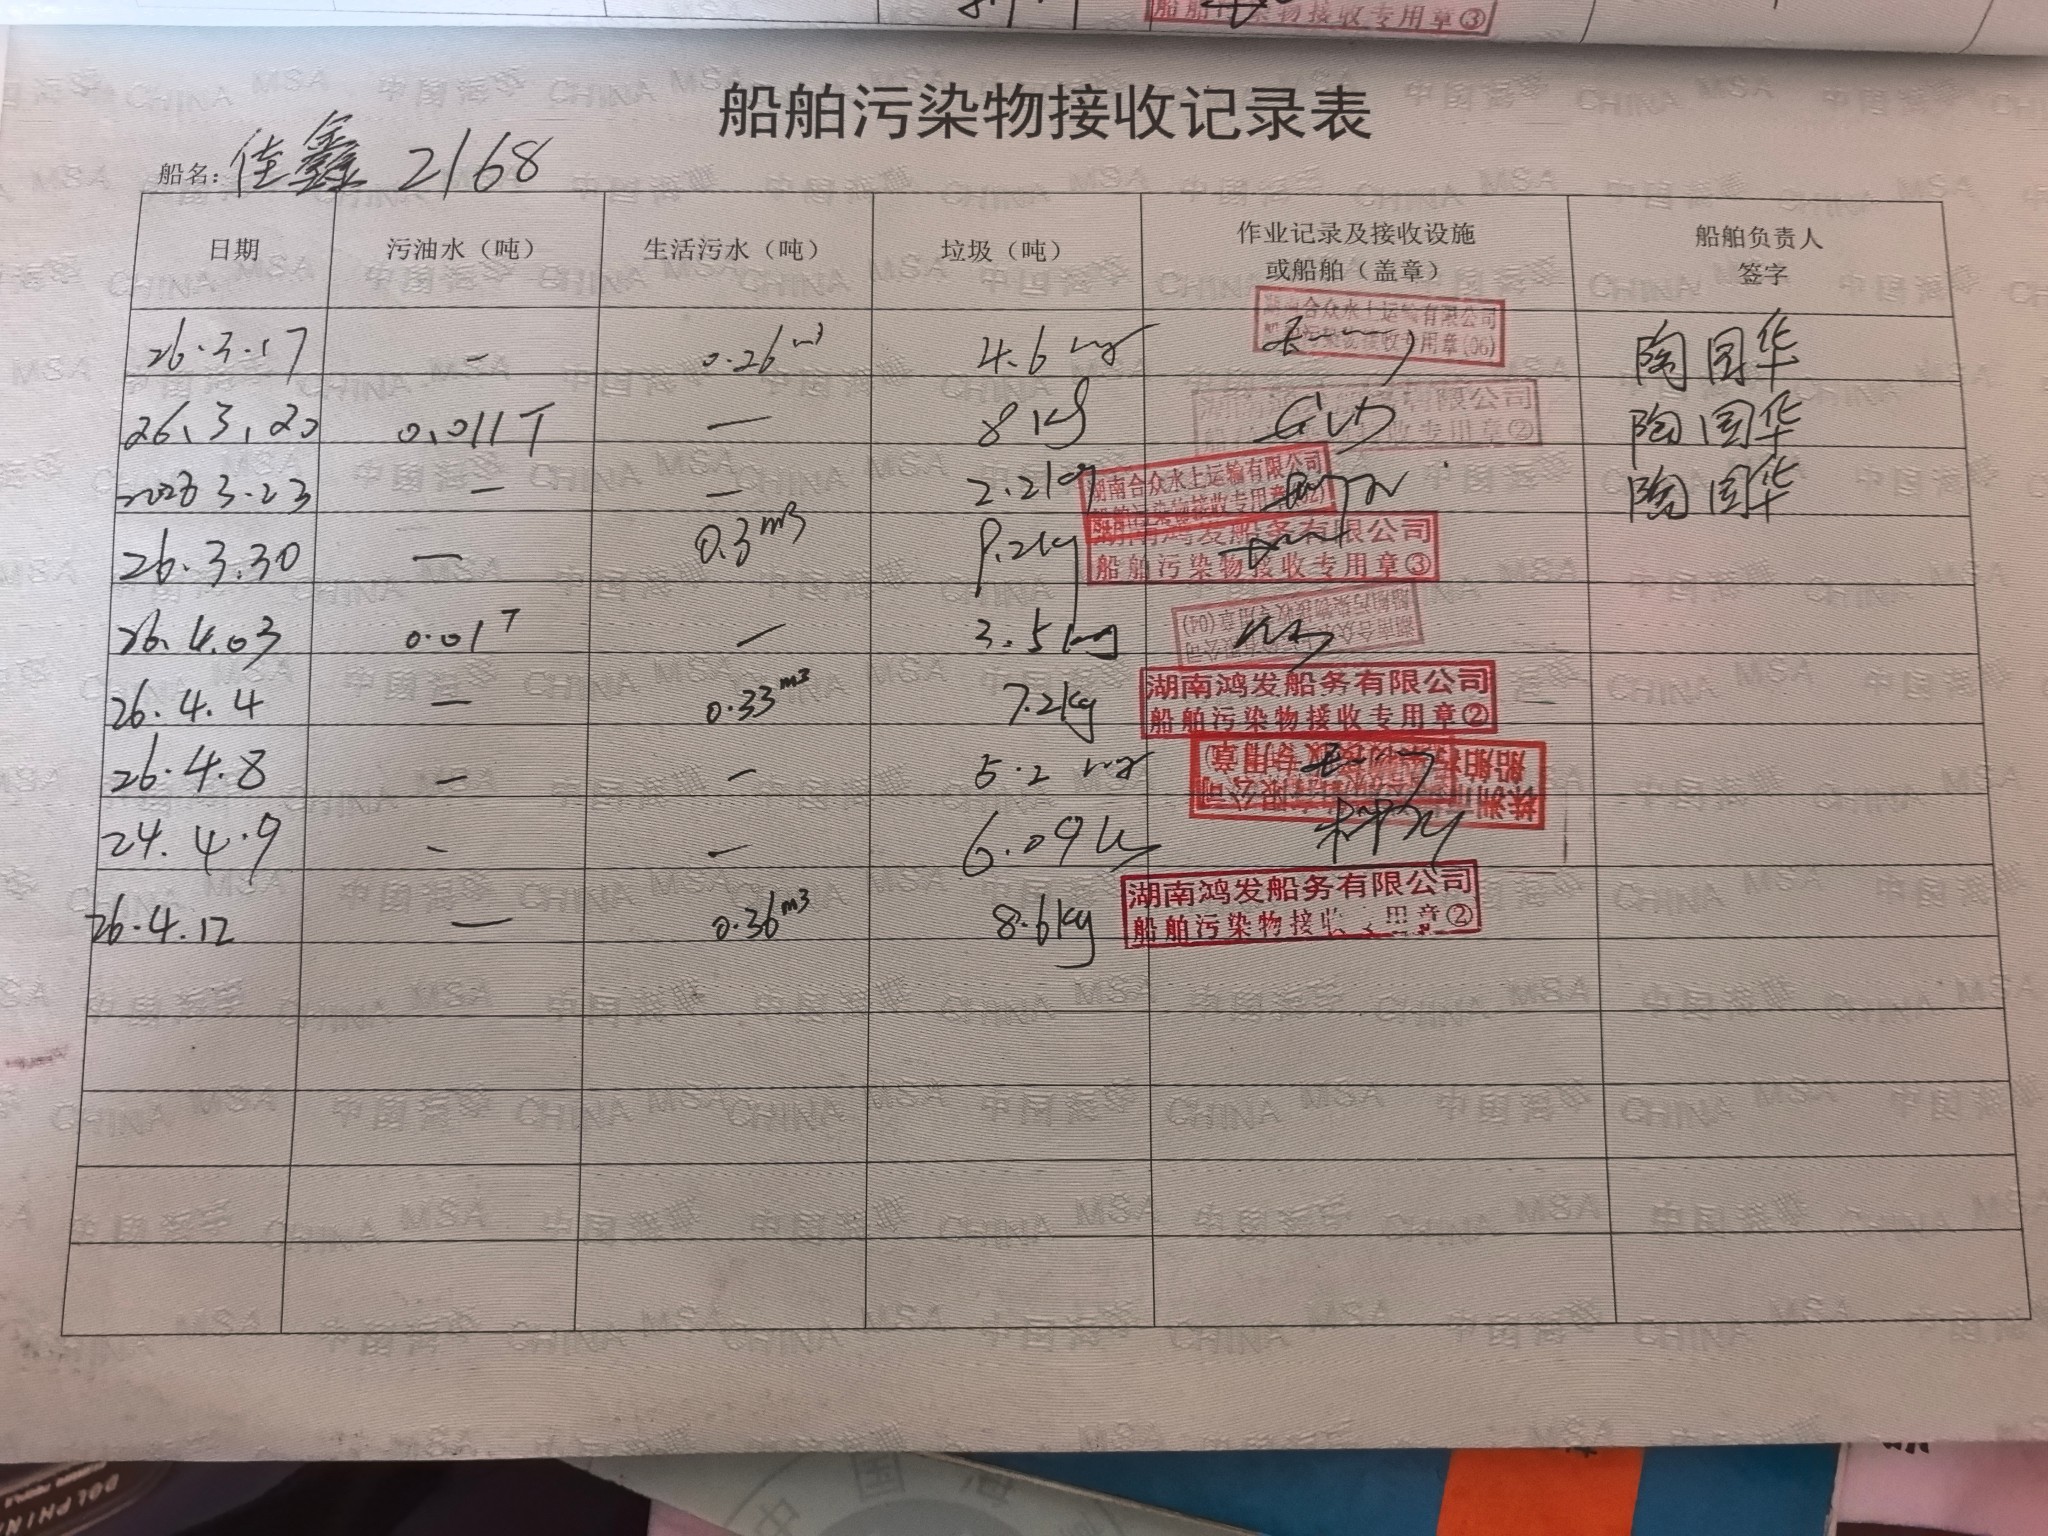 船舶污染物接收专用章③
船舶污染物接收记录表
船名: 佳鑫 2168
日期 污油水（吨） 生活污水（吨） 垃圾（吨） 作业记录及接收设施或船舶（盖章） 船舶负责人签字
26.3.17 — 0.26 m³ 4.6 湖南合众水上运输有限公司 船舶污染物接收专用章(06) 陶国华
26.3.20 0.011T — 8kg 有限公司 船舶污染物接收专用章② 陶国华
2026 3.23 — — 2.2kg 湖南合众水上运输有限公司 船舶污染物接收专用章(02) 陶国华
26.3.30 — 0.3m³ 9.2kg 湖南鸿发船务有限公司 船舶污染物接收专用章③
26.4.03 0.01T — 3.5kg 湖南合众 船舶污染物接收专用章(04)
26.4.4 — 0.33m³ 7.2kg 湖南鸿发船务有限公司 船舶污染物接收专用章②
26.4.8 — — 5.2
24.4.9 — — 6.09
26.4.12 — 0.36m³ 8.6kg 湖南鸿发船务有限公司 船舶污染物接收 用章②
中国海事 CHINA MSA
DOLPHIN